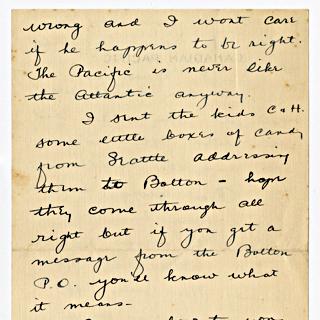 wrong and I wont care
if he happens to be right.
The Pacific is never like
the Atlantic anyway.
I sent the kids C & H.
some little boxes of candy
from Seattle addressing
them to Bolton - hope
they come through all
right but if you get a
message from the Bolton
P.O. you'll know what
it means-